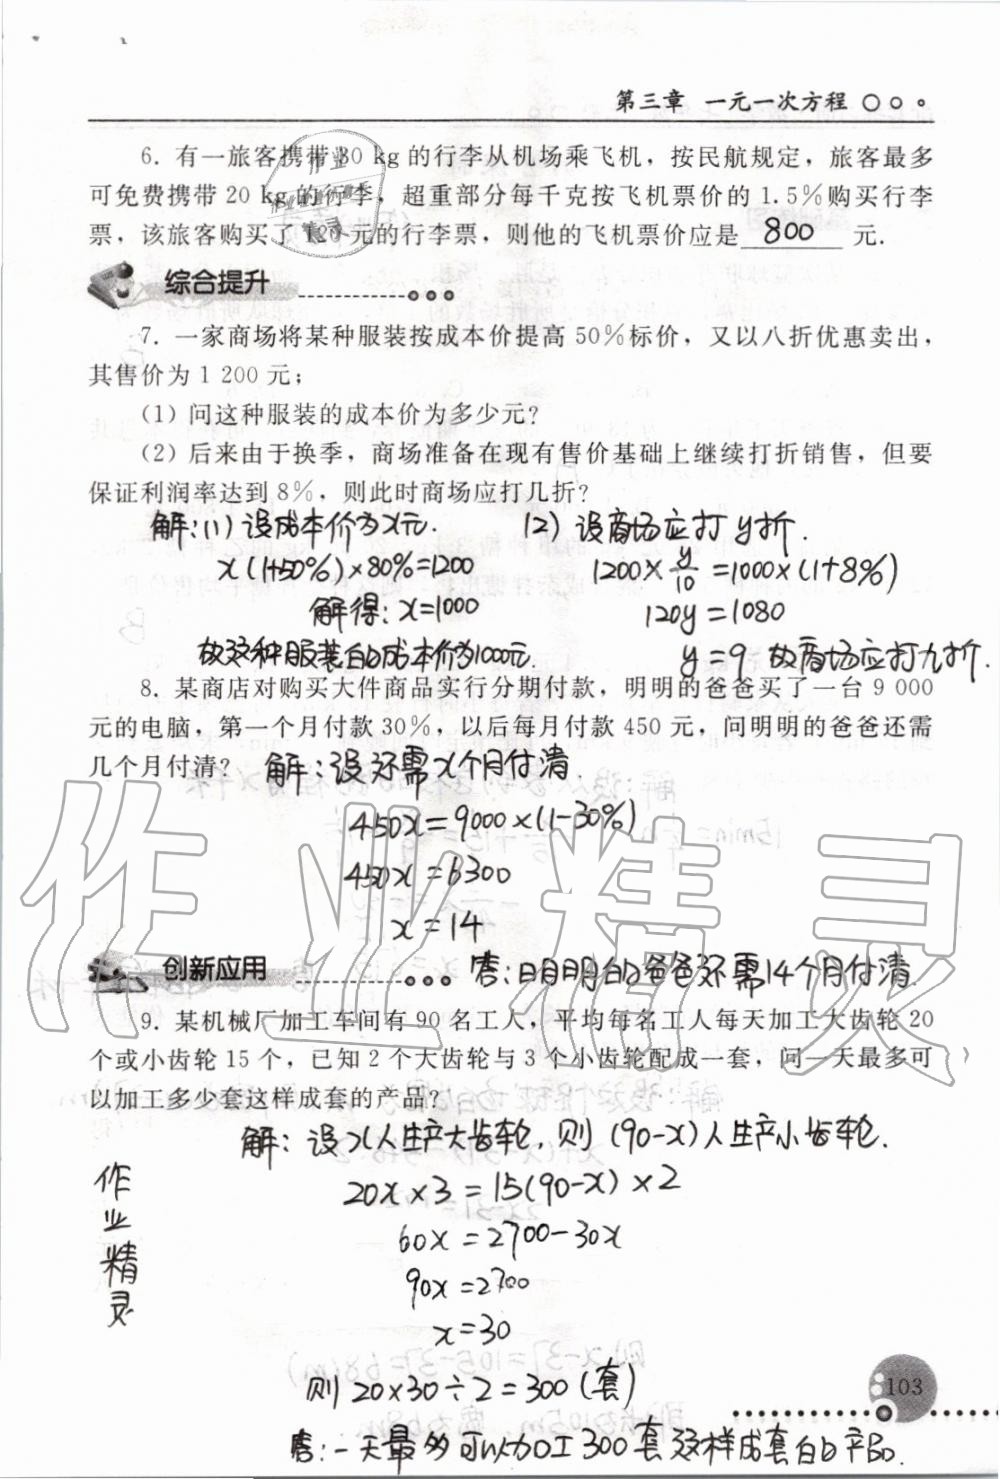 第三章 一元一次方程
6. 有一旅客携带 30 kg 的行李从机场乘飞机，按民航规定，旅客最多
可免费携带 20 kg 的行李，超重部分每千克按飞机票价的 1.5%购买行李
票，该旅客购买了 120 元的行李票，则他的飞机票价应是 800 元.
综合提升
7. 一家商场将某种服装按成本价提高 50%标价，又以八折优惠卖出，
其售价为 1 200 元；
(1) 问这种服装的成本价为多少元？
(2) 后来由于换季，商场准备在现有售价基础上继续打折销售，但要
保证利润率达到 8%，则此时商场应打几折？
解:(1) 设成本价为x元.
x(1+50%)×80%=1200
解得: x=1000
故这种服装的成本价为1000元.
(2) 设商场应打y折.
1200×y/10=1000×(1+8%)
120y=1080
y=9 故商场应打九折.
8. 某商店对购买大件商品实行分期付款，明明的爸爸买了一台 9 000
元的电脑，第一个月付款 30%，以后每月付款 450 元，问明明的爸爸还需
几个月付清？ 解:设还需x个月付清.
450x=9000×(1-30%)
450x=6300
x=14
答:明明的爸爸还需14个月付清.
创新应用
9. 某机械厂加工车间有 90 名工人，平均每名工人每天加工大齿轮 20
个或小齿轮 15 个，已知 2 个大齿轮与 3 个小齿轮配成一套，问一天最多可
以加工多少套这样成套的产品？
解: 设x人生产大齿轮，则(90-x)人生产小齿轮.
20x×3=15(90-x)×2
60x=2700-30x
90x=2700
x=30
则20×30÷2=300(套)
答:一天最多可以加工300套这样成套的产品.
作业精灵
作业精灵
103